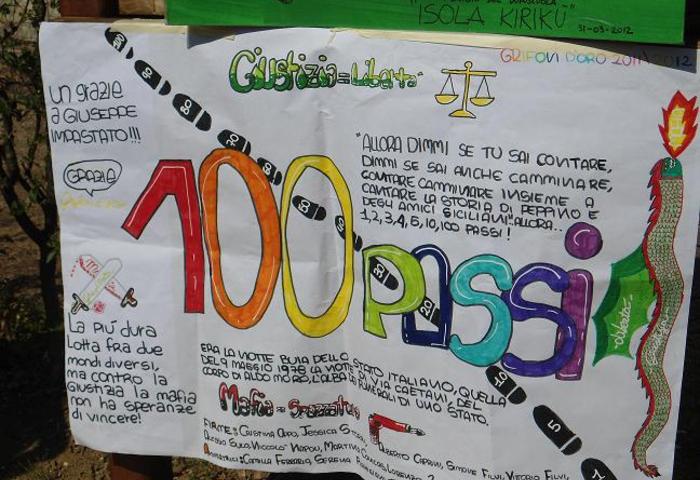 ISOLA KIRIKÙ"
31-03-2012
GRIFONI D'ORO 2011/2012
Giustizia = Libertà
un grazie
a GIUSEPPE
IMPASTATO!!!
GRAZIE
100 90 80 70 60 50 40 30 20 10 5 1
"ALLORA DIMMI SE TU SAI CONTARE,
DIMMI SE SAI ANCHE CAMMINARE,
CONTARE CAMMINARE INSIEME A
CANTARE LA STORIA DI PEPPINO E
DEGLI AMICI SICILIANI" ALLORA..
1,2,3,4,5,10,100 PASSI!
100 passi
La più dura
Lotta fra due
mondi diversi,
ma contro la
Giustizia la mafia
non ha speranze
di vincere!
ERA LA NOTTE BUIA DELLO STATO ITALIANO, QUELLA
DEL 9 MAGGIO 1978 LA NOTTE DI VIA CAETANI, DEL
CORPO DI ALDO MORO, L'ALBA DEI FUNERALI DI UNO STATO.
Mafia = Spazzatura
FIRME: CRISTINA JESSICA ALBERTO SIMONE FILVI, VITTORIA FILVI,
ALESSIO NICCOLÒ NAPOLI, MARTINA LORENZO
CAMILLA FERRARIA, SERENA